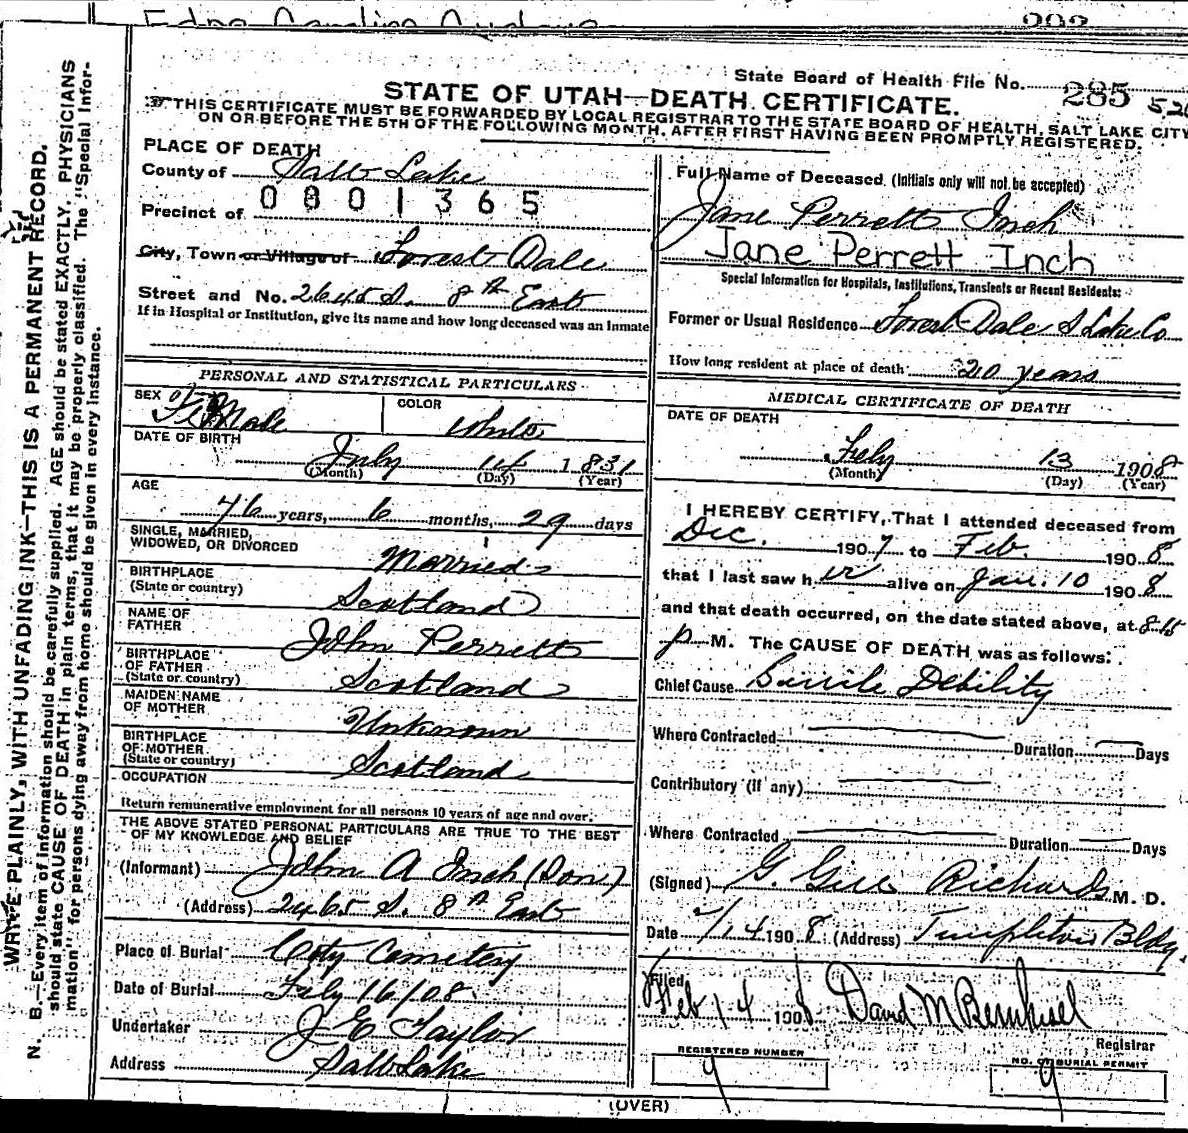 Edna Caroline
State Board of Health File No. 285 526
STATE OF UTAH—DEATH CERTIFICATE.
THIS CERTIFICATE MUST BE FORWARDED BY LOCAL REGISTRAR TO THE STATE BOARD OF HEALTH, SALT LAKE CITY
ON OR BEFORE THE 5TH OF THE FOLLOWING MONTH, AFTER FIRST HAVING BEEN PROMPTLY REGISTERED.
WRITE PLAINLY, WITH UNFADING INK—THIS IS A PERMANENT RECORD.
N. B.—Every item of information should be carefully supplied. AGE should be stated EXACTLY. PHYSICIANS
should state CAUSE OF DEATH in plain terms, that it may be properly classified. The "Special Infor-
mation" for persons dying away from home should be given in every instance.
PLACE OF DEATH
County of Salt Lake
0801365
Precinct of
City, Town or Village of Forest Dale
Street and No. 2645 S. 8th East
If in Hospital or Institution, give its name and how long deceased was an Inmate
PERSONAL AND STATISTICAL PARTICULARS
SEX FeMale COLOR White
DATE OF BIRTH July 14 1831
(Month) (Day) (Year)
AGE
76 years, 6 months, 29 days
SINGLE, MARRIED,
WIDOWED, OR DIVORCED Married
BIRTHPLACE
(State or country) Scotland
NAME OF
FATHER John Perrett
BIRTHPLACE
OF FATHER
(State or country) Scotland
MAIDEN NAME
OF MOTHER Unknown
BIRTHPLACE
OF MOTHER
(State or country) Scotland
OCCUPATION
Return remunerative employment for all persons 10 years of age and over.
THE ABOVE STATED PERSONAL PARTICULARS ARE TRUE TO THE BEST
OF MY KNOWLEDGE AND BELIEF
(Informant) John A Inch (Son)
(Address) 2465 S. 8th East
Place of Burial City Cemetery
Date of Burial Feby 16/08
Undertaker J E Taylor
Address Salt Lake
Full Name of Deceased (Initials only will not be accepted)
Jane Perrett Inch
Jane Perrett Inch
Special Information for Hospitals, Institutions, Transients or Recent Residents:
Former or Usual Residence Forest Dale S Lake Co
How long resident at place of death 20 years
MEDICAL CERTIFICATE OF DEATH
DATE OF DEATH
Feby 13 1908
(Month) (Day) (Year)
I HEREBY CERTIFY, That I attended deceased from
Dec. 1907 to Feb. 1908
that I last saw her alive on Jan. 10 1908
and that death occurred, on the date stated above, at 8-15
p M. The CAUSE OF DEATH was as follows:
Chief Cause Senile Debility
Where Contracted Duration Days
Contributory (if any)
Where Contracted Duration Days
(Signed) G. Gill Richards M. D.
Date 2/14 1908 (Address) Templeton Bldg.
Filed
Feb 14 1908 David M
Registrar
REGISTERED NUMBER
9
NO. OF BURIAL PERMIT
9
(OVER)